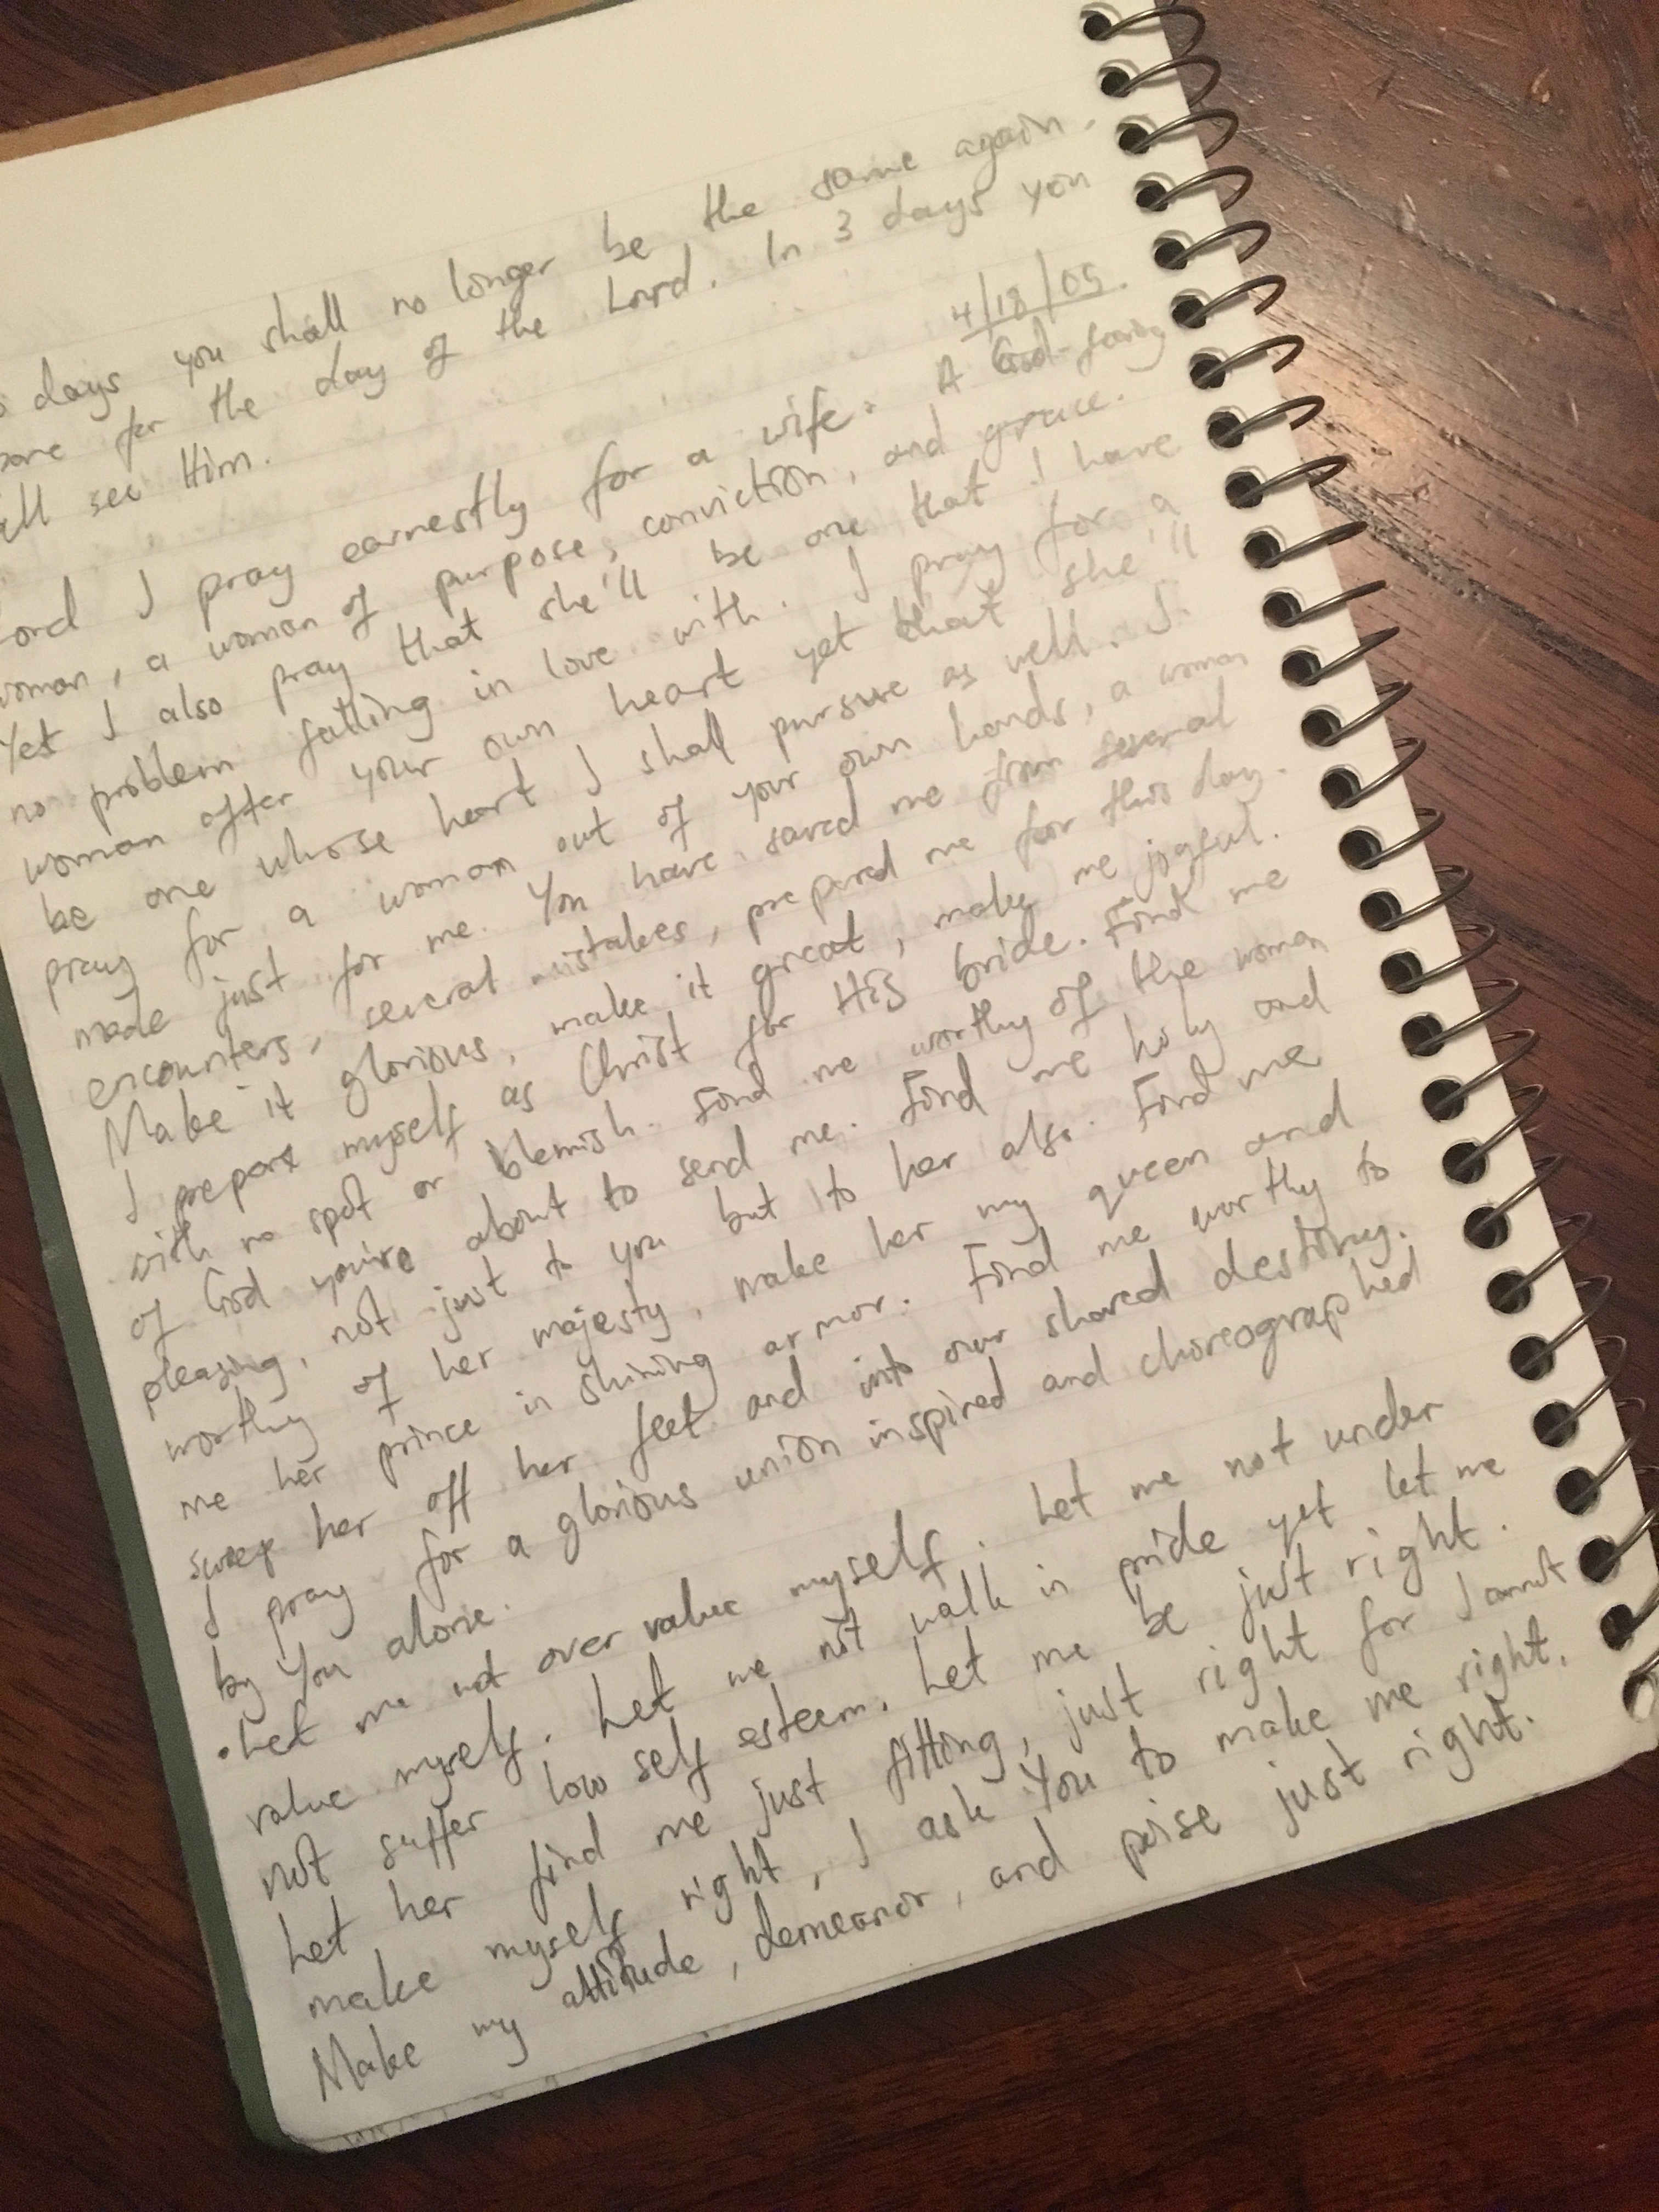 days you shall no longer be the same again.
for the day of the Lord. In 3 days you
see Him.
4/18/05
I pray earnestly for a wife. A God-fearing
woman, a woman of purpose, conviction, and grace.
Yet I also pray that she'll be one that I have
no problem falling in love with. I pray for a
woman after your own heart yet that she'll
be one whose heart I shall pursue as well. I
pray for a woman out of your own hands, a woman
made just for me. You have saved me from several
encounters, several mistakes, prepared me for this day.
Make it glorious, make it great, make me joyful.
I prepare myself as Christ for His bride. Find me
with no spot or blemish. Find me worthy of the woman
of God you're about to send me. Find me holy and
pleasing, not just to you but to her also. Find me
worthy of her majesty, make her my queen and
me her prince in shining armor. Find me worthy to
sweep her off her feet and into our shared destiny.
I pray for a glorious union inspired and choreographed
by You alone.
• Let me not over value myself. Let me not under
value myself. Let me not walk in pride yet let me
not suffer low self esteem. Let me be just right.
Let her find me just fitting, just right for I cannot
make myself right, I ask You to make me right.
Make my attitude, demeanor, and poise just right.